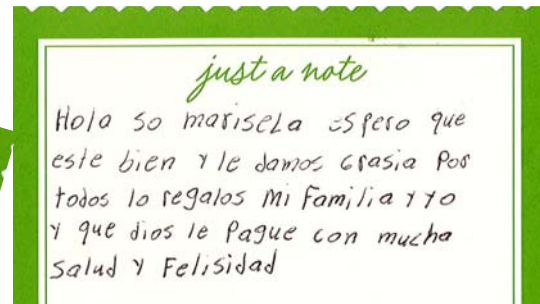 just a note
Hola so marisela espero que
este bien y le damos Grasia Por
todos lo regalos Mi Familia y yo
y que dios le Pague con mucha
Salud y Felisidad